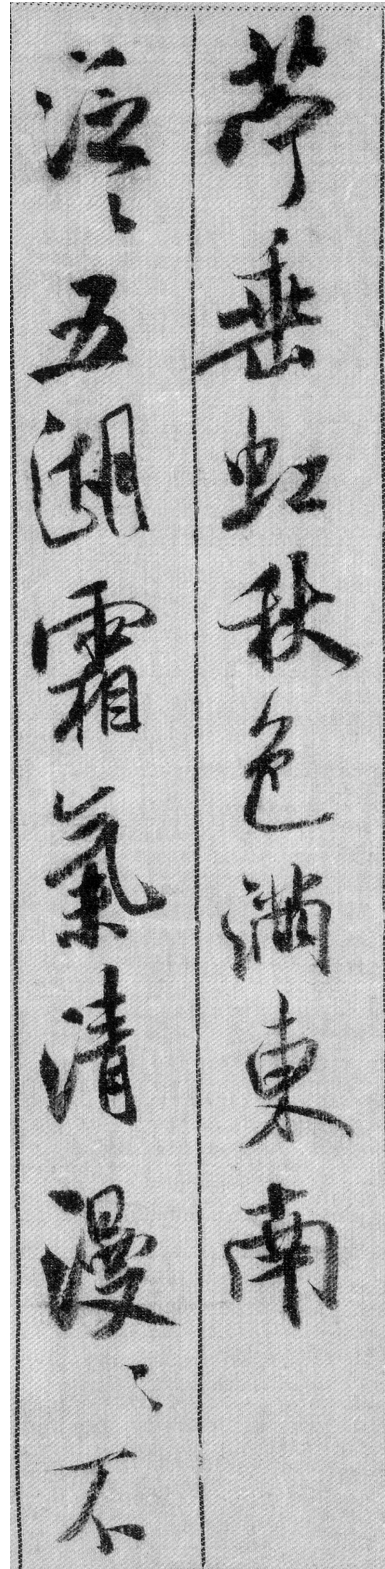 苧垂虹秋色滿東南
泛〻五湖霜氣清漫〻不